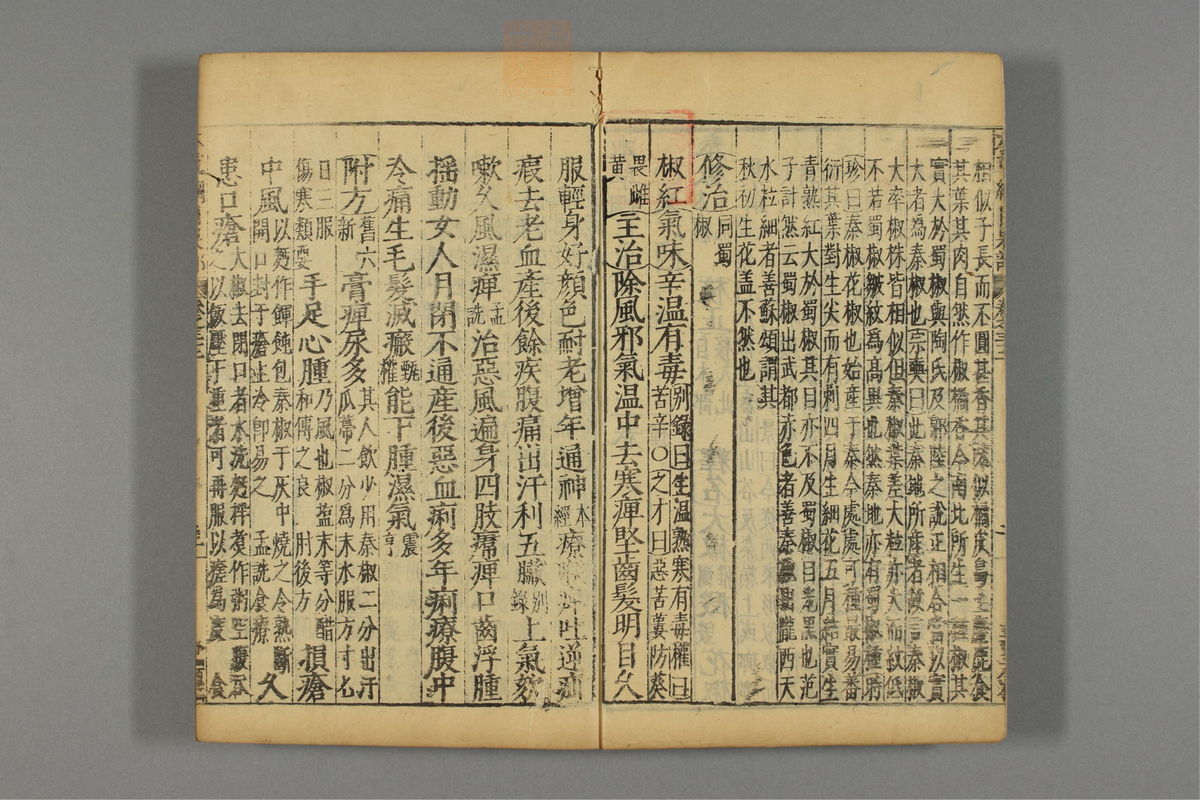 相似子長而不圓甚香其味似橘皮島上麞鹿食
其葉其肉自然作椒橘香今南北所生一種椒其
實大於蜀椒與陶氏及郭陸之說正相合當以實
大者為秦椒也宗奭曰此秦地所產者故言秦椒
大率椒株皆相似但秦椒葉差大粒亦大而紋低
不若蜀椒皺紋為高異也然秦地亦有蜀椒種時
珍曰秦椒花椒也始產于秦今處處可種最易蕃
衍其葉對生尖而有刺四月生細花五月結實生
青熟紅大於蜀椒其目亦不及蜀椒目光黑也范
子計然云蜀椒出武都赤色者善秦椒出隴西天
水粒細者善蘇頌謂其
秋初生花蓋不然也
修治同蜀椒
椒紅氣味辛溫有毒別錄曰生溫熟寒有毒權曰
苦辛○之才曰惡苦蔞防葵
畏雌黃主治除風邪氣溫中去寒痺堅齒髮明目久
服輕身好顏色耐老增年通神本經療喉痺吐逆疝
瘕去老血產後餘疾腹痛出汗利五臟別錄上氣欬
嗽久風濕痺孟詵治惡風遍身四肢𤸷痺口齒浮腫
搖動女人月閉不通產後惡血痢多年痢療腹中
冷痛生毛髮滅瘢甄權能下腫濕氣震亨
附方舊六新膏痺尿多其人飲少用秦椒二分出汗
瓜蒂二分為末水服方寸匕
日三服傷寒類要手足心腫乃風也椒鹽末等分醋
和傅之良肘後方損瘡
中風以麪作餛飩包秦椒于灰中燒之令熟斷
開口封于瘡上冷即易之孟詵食療久
患口瘡大椒去閉口者水洗麪拌煮作粥空腹吞
之以飯壓下重者可再服以瘥為度食